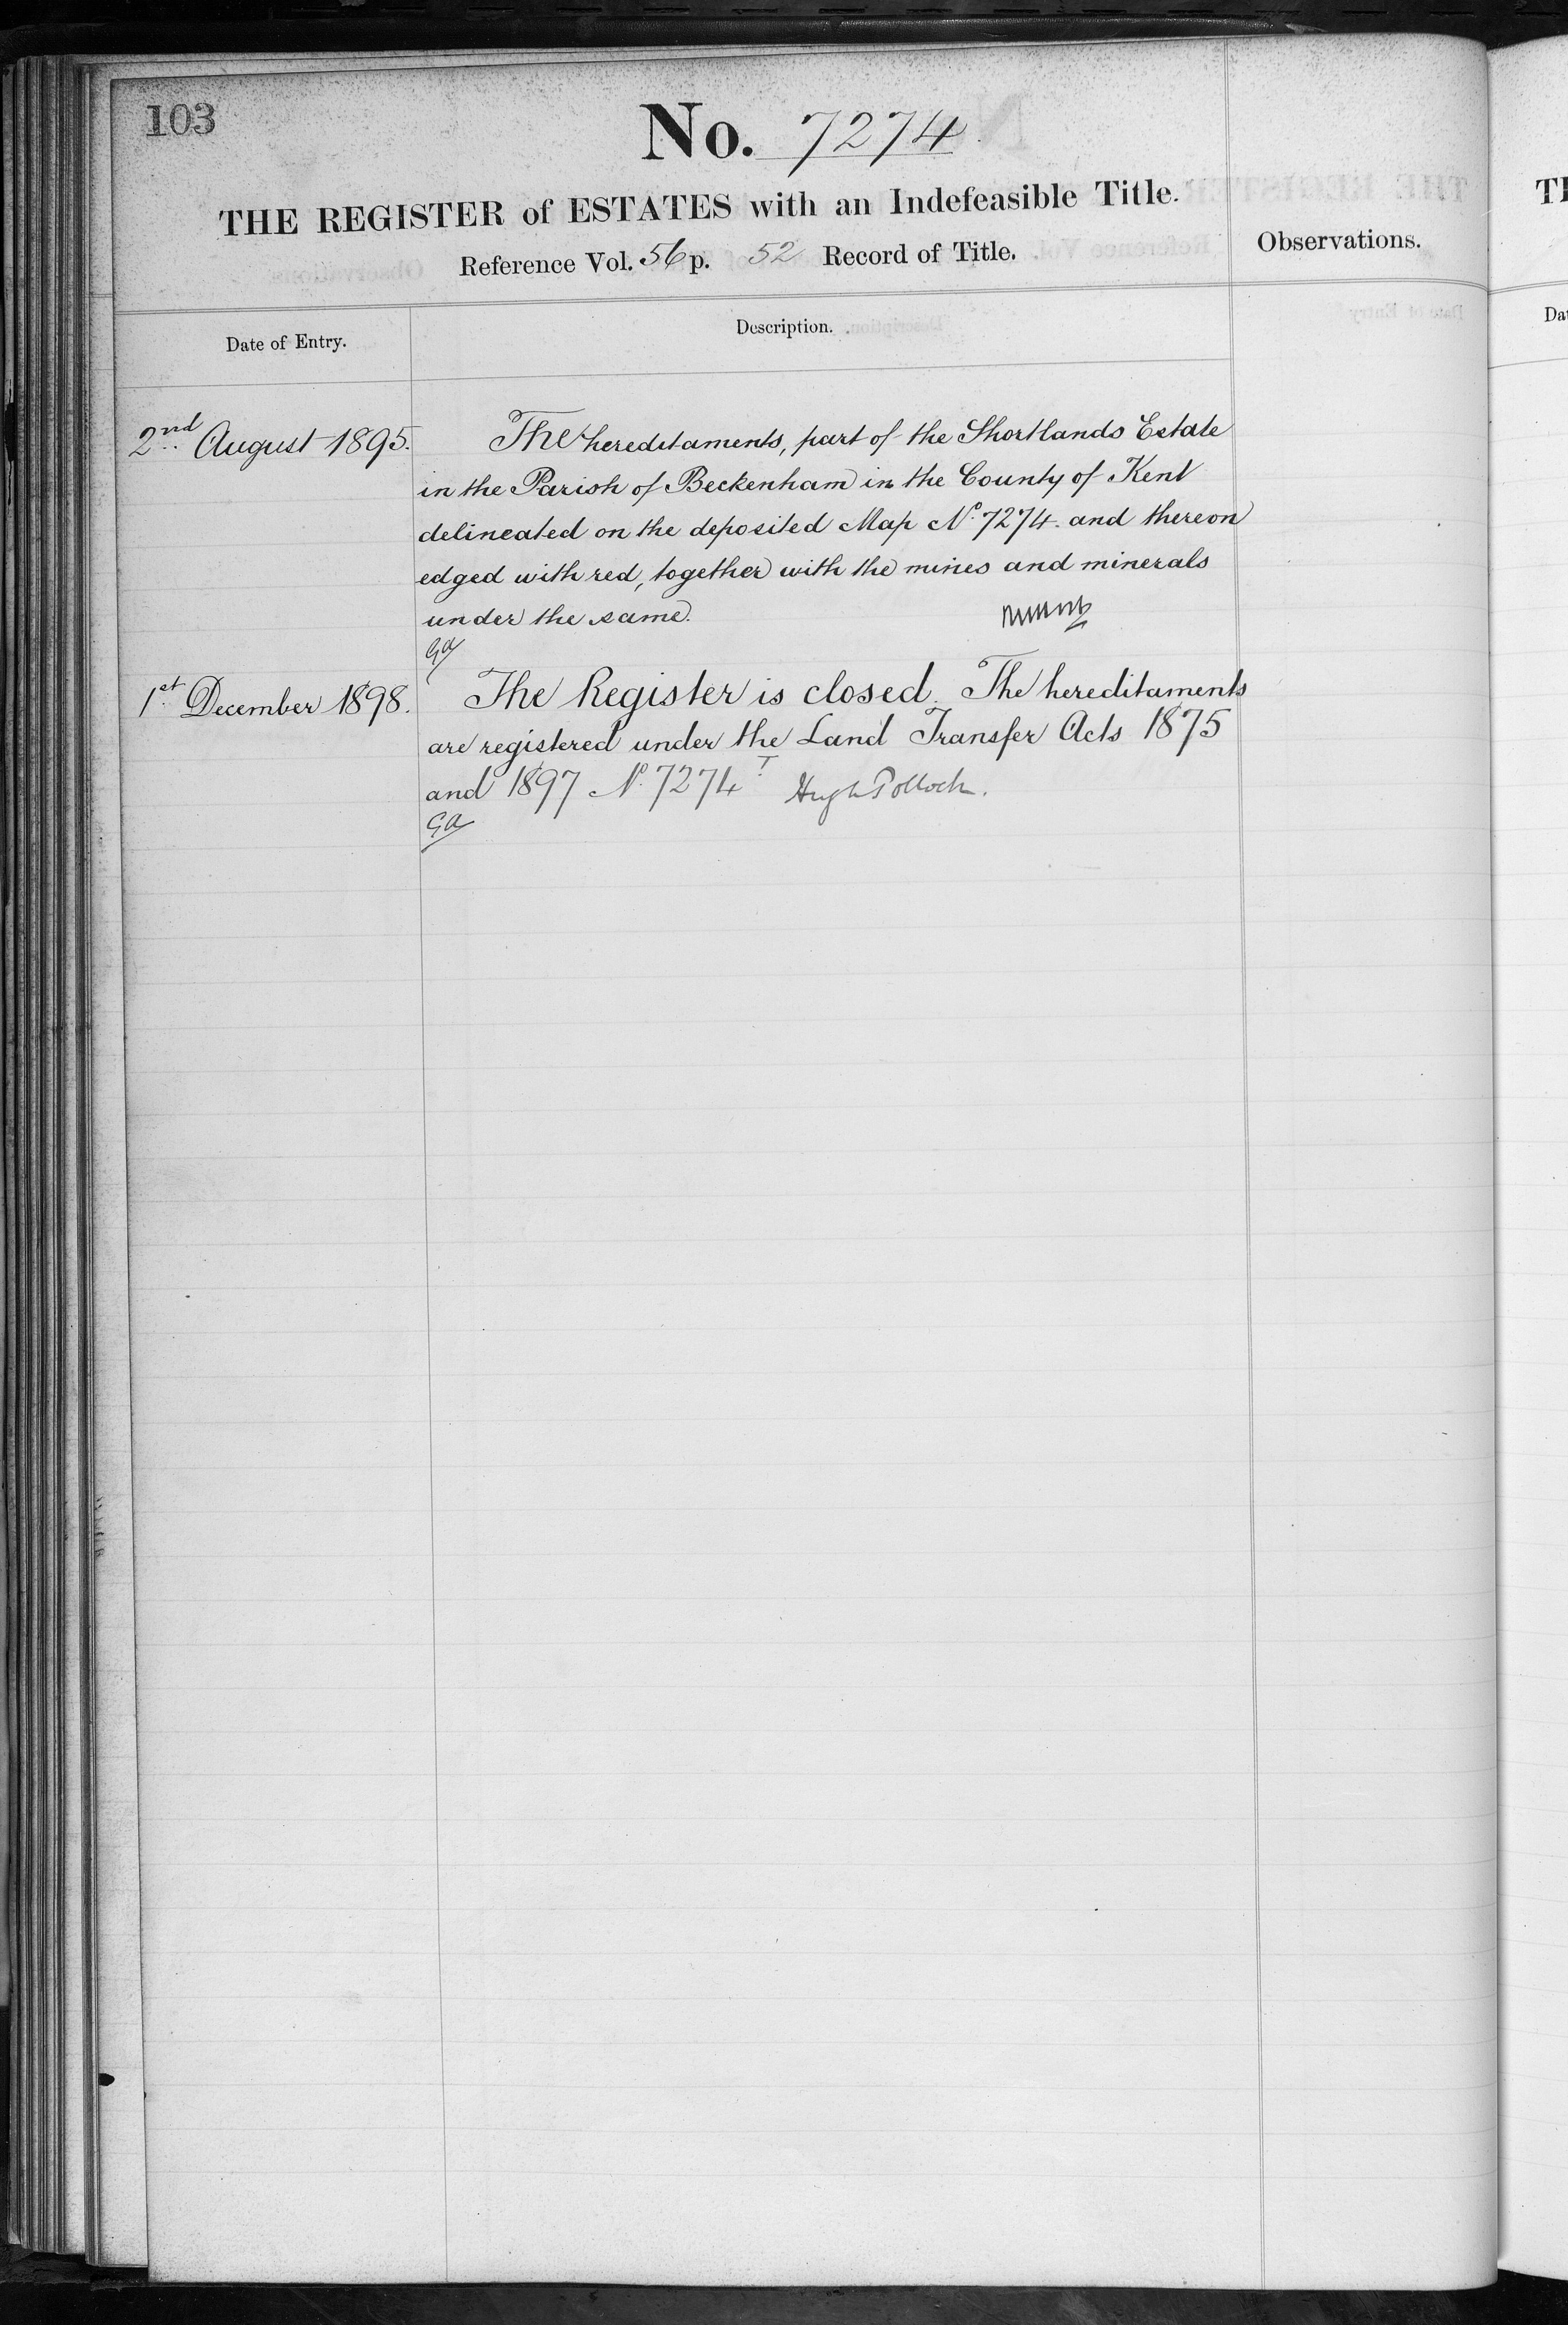 103
No. 7274
THE REGISTER of ESTATES with an Indefeasible Title.
Reference Vol. 56 p. 52 Record of Title.
Observations.
Date of Entry.
Description.
2nd August 1895.
The hereditaments, part of the Shortlands Estate
in the Parish of Beckenham in the County of Kent
delineated on the deposited Map No. 7274. and thereon
edged with red, together with the mines and minerals
under the same.
GA
1st December 1898.
The Register is closed. The hereditaments
are registered under the Land Transfer Acts 1875
and 1897 No. 7274 T Hugh Pollock.
GA